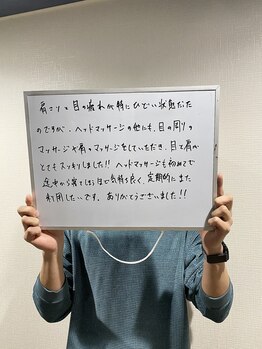 肩こりと目の疲れが特にひどい状態だった
のですが、ヘッドマッサージの他にも、目の周りの
マッサージや肩のマッサージをしていただき、目も肩も
とてもスッキリしました!! ヘッドマッサージも初めてで
途中から寝てしまう程で気持ち良く、定期的にまた
利用したいです。ありがとうございました!!